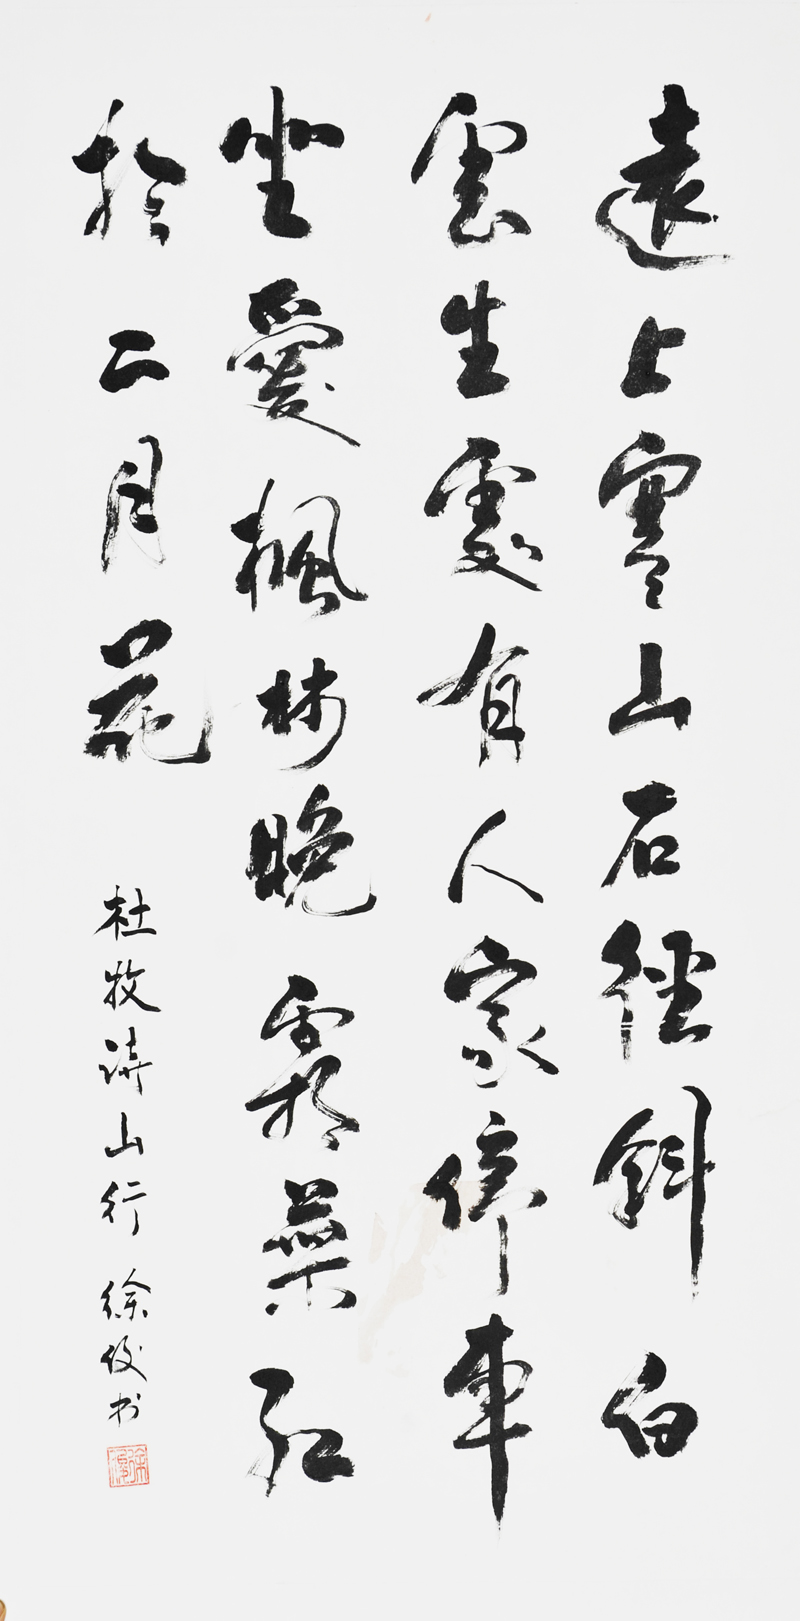 遠上寒山石徑斜白
雲生處有人家停車
坐愛楓林晚霜葉紅
於二月花
杜牧詩山行 徐俊书